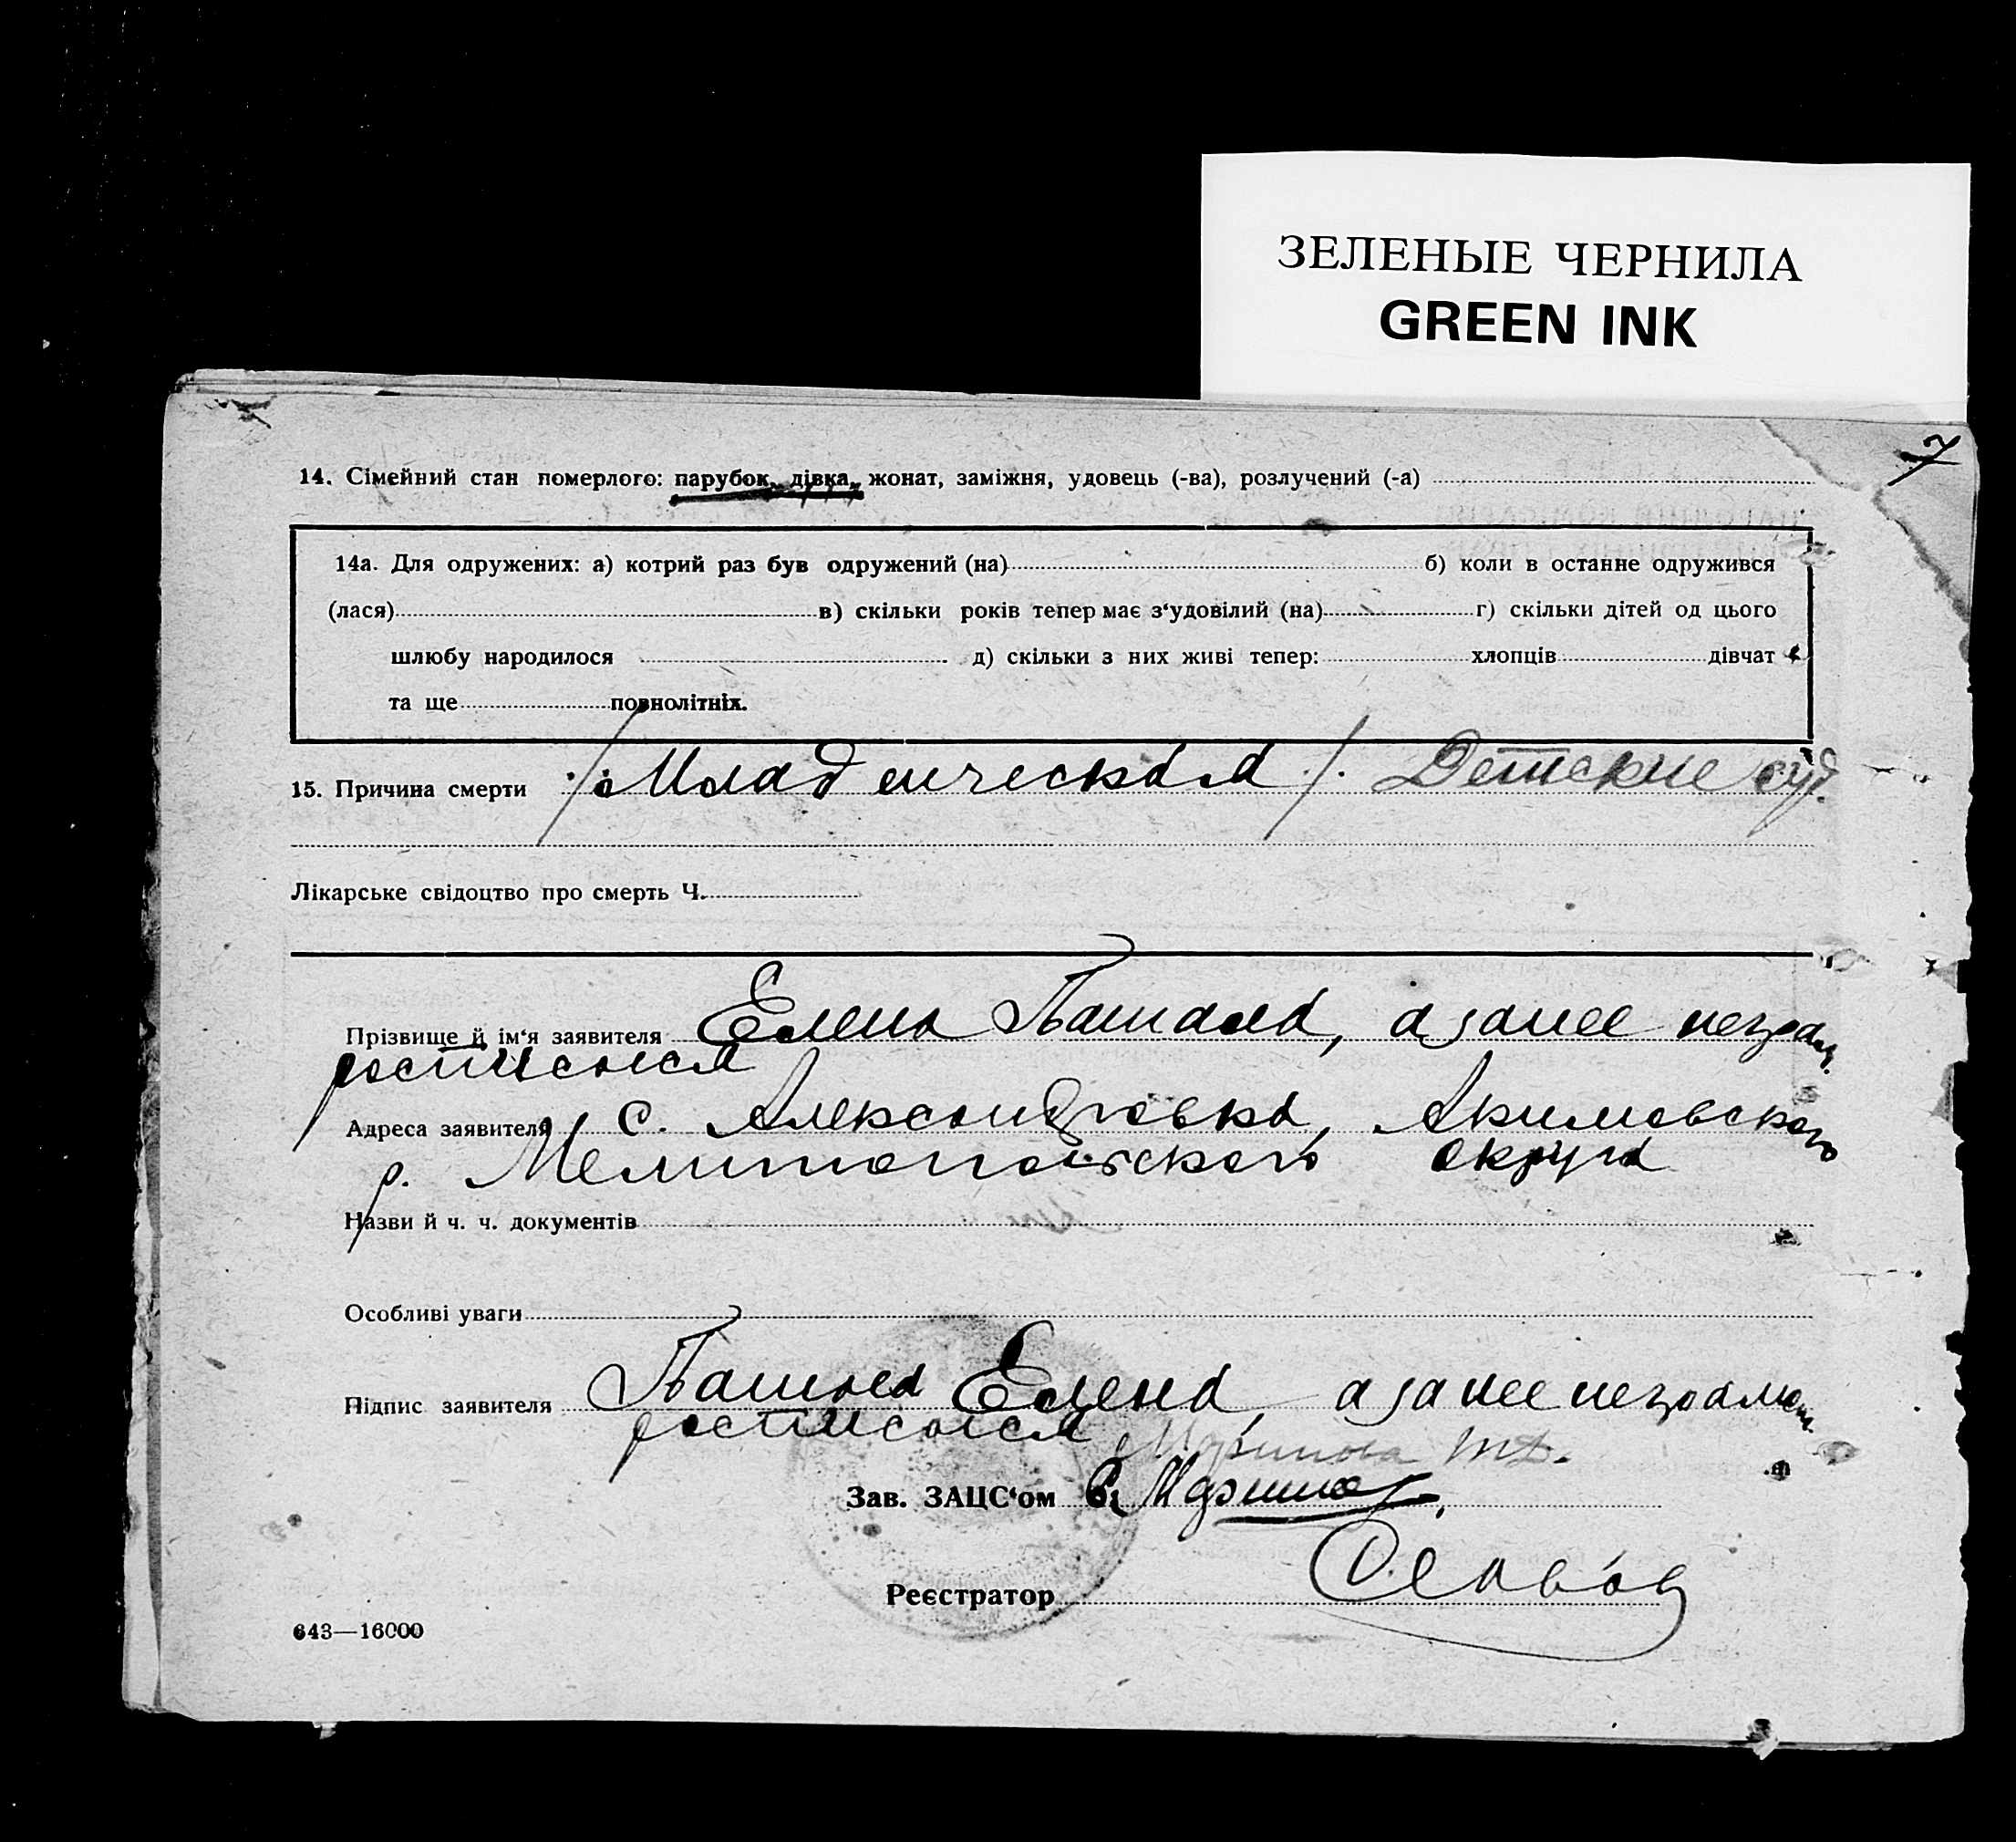 ЗЕЛЕНЫЕ ЧЕРНИЛА
GREEN INK
7
14. Сімейний стан померлого: парубок, дівка, жонат, заміжня, удовець (-ва), розлучений (-а)
14а. Для одружених: а) котрий раз був одружений (на) б) коли в останне одружився
(лася) в) скільки років тепер має з‘удовілий (на) г) скільки дітей од цього
шлюбу народилося д) скільки з них живі тепер: хлопців дівчат
та ще повнолітніх.
15. Причина смерти /Младенческая/ Детские суд.
Лікарське свідоцтво про смерть Ч.
Прізвище й ім‘я заявителя Елена а за нее
Адреса заявителя с. Александровка, Акимовского
р. Мелитопольского округа
Назви й ч. ч. документів
Особливі уваги
Підпис заявителя Елена, а за нее
Зав. ЗАЦС‘ом
Реєстратор
643—16000